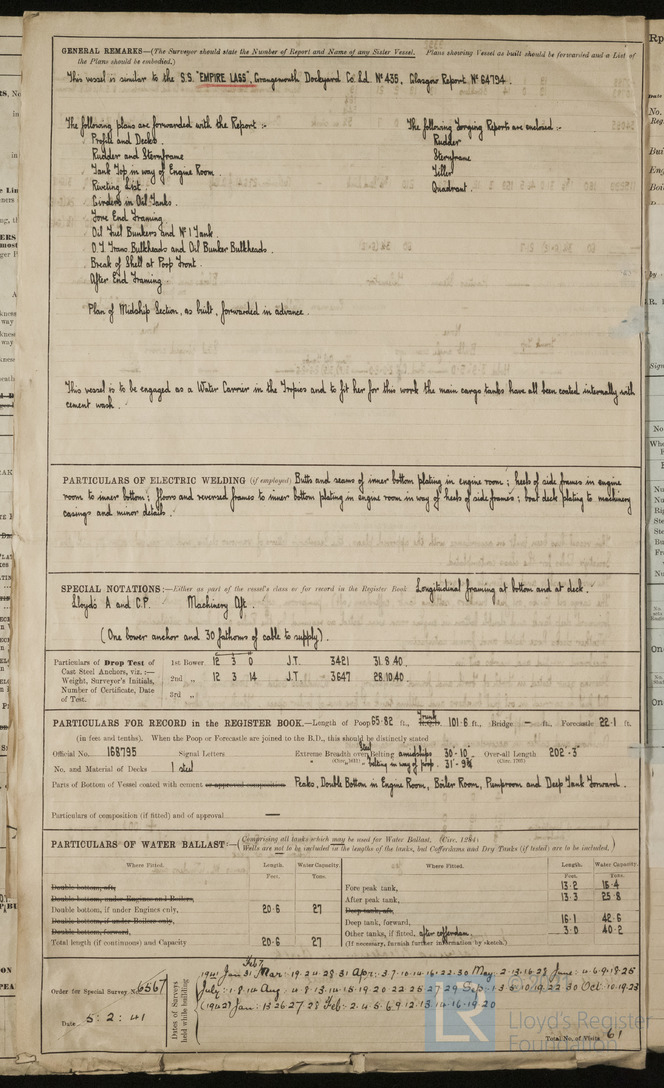 GENERAL REMARKS—(The Surveyor should state the Number of Report and Name of any Sister Vessel. Plans showing Vessel as built should be forwarded and a List of
the Plans should be embodied.)
This vessel is similar to the S.S. "EMPIRE LASS", Grangemouth Dockyard Co Ltd. No 435, Glasgow Report No 64794.
The following plans are forwarded with the Report :-
Profile and Decks.
Rudder and Sternframe
Tank Top in way of Engine Room.
Riveting List.
Girders in Oil Tanks.
Fore End Framing.
Oil Fuel Bunkers and No 1 Tank
O.T. Trans Bulkheads and Oil Bunker Bulkheads.
Break of Shell at Poop Front.
After End Framing.
Plan of Midship Section, as built, forwarded in advance.
The following Forging Reports are enclosed :-
Rudder
Sternframe
Tiller
Quadrant.
This vessel is to be engaged as a Water Carrier in the Tropics and to fit her for this work the main cargo tanks have all been coated internally with
cement wash.
PARTICULARS OF ELECTRIC WELDING (if employed) Butts and seams of inner bottom plating in engine room ; heels of side frames in engine
room to inner bottom ; floors and reversed frames to inner bottom plating in engine room in way of heels of side frames ; boat deck plating to machinery
casings and minor details.
SPECIAL NOTATIONS:—Either as part of the vessel's class or for record in the Register Book Longitudinal framing at bottom and at deck.
Lloyds A and C.P. Machinery Aft.
(One bower anchor and 30 fathoms of cable to supply).
Particulars of Drop Test of
Cast Steel Anchors, viz. :—
Weight, Surveyor's Initials,
Number of Certificate, Date
of Test.
1st Bower 12 3 0 J.T. 3421 31.8.40.
2nd " 12 3 14 J.T. 3647 28.10.40.
3rd "
PARTICULARS FOR RECORD in the REGISTER BOOK.—Length of Poop 65.82 ft., Trunk 101.6 ft., Bridge — ft., Forecastle 22.1 ft.
(in feet and tenths). When the Poop or Forecastle are joined to the B.D., this should be distinctly stated
Official No. 168795 Signal Letters Extreme Breadth over Belting amidships 30'-10" Over-all Length 202'-3"
No. and Material of Decks 1 steel (Circ. 1611) belting in way of poop. (Circ. 1705)
Parts of Bottom of Vessel coated with cement or approved composition Peaks, Double Bottom in Engine Room, Boiler Room, Pumproom and Deep Tank Forward.
Particulars of composition (if fitted) and of approval —
PARTICULARS OF WATER BALLAST:—(Comprising all tanks which may be used for Water Ballast. (Circ. 1284)
Wells are not to be included in the lengths of the tanks, but Cofferdams and Dry Tanks (if tested) are to be included.)
Where Fitted. Length. Water Capacity.
Feet. Tons.
Double bottom, aft,
Double bottom, under Engines and Boilers,
Double bottom, if under Engines only, 20.6 27
Double bottom, if under Boilers only,
Double bottom, forward,
Total length (if continuous) and Capacity 20.6 27
Where Fitted. Length. Water Capacity.
Feet. Tons.
Fore peak tank, 13.2 15.4
After peak tank, 13.3 25.8
Deep tank, aft,
Deep tank, forward, 16.1 42.6
Other tanks, if fitted, after cofferdam. 3.0 40.2
(If necessary, furnish further information by sketch.)
Order for Special Survey No. 6567
Date 5.2.41
Dates of Surveys
held while building
1941 Jan 31 Feb 7 Mar: 19.24.28.31 Apr: 3.7.10.14.16.22.30 May: 2.13.16.28 June: 4.6.9.18.25
July: 1.8.14 Aug: 4.8.13.14.15.19.20.22.25.27.29 Sep: 1.3.5.10.19.22.30 Oct: 10.19.23
(1942) Jan: 13.26.27.28 Feb: 2.4.5.6.9.12.13.14.16.19.20
Total No. of Visits 61
LR
Lloyd's Register
Foundation